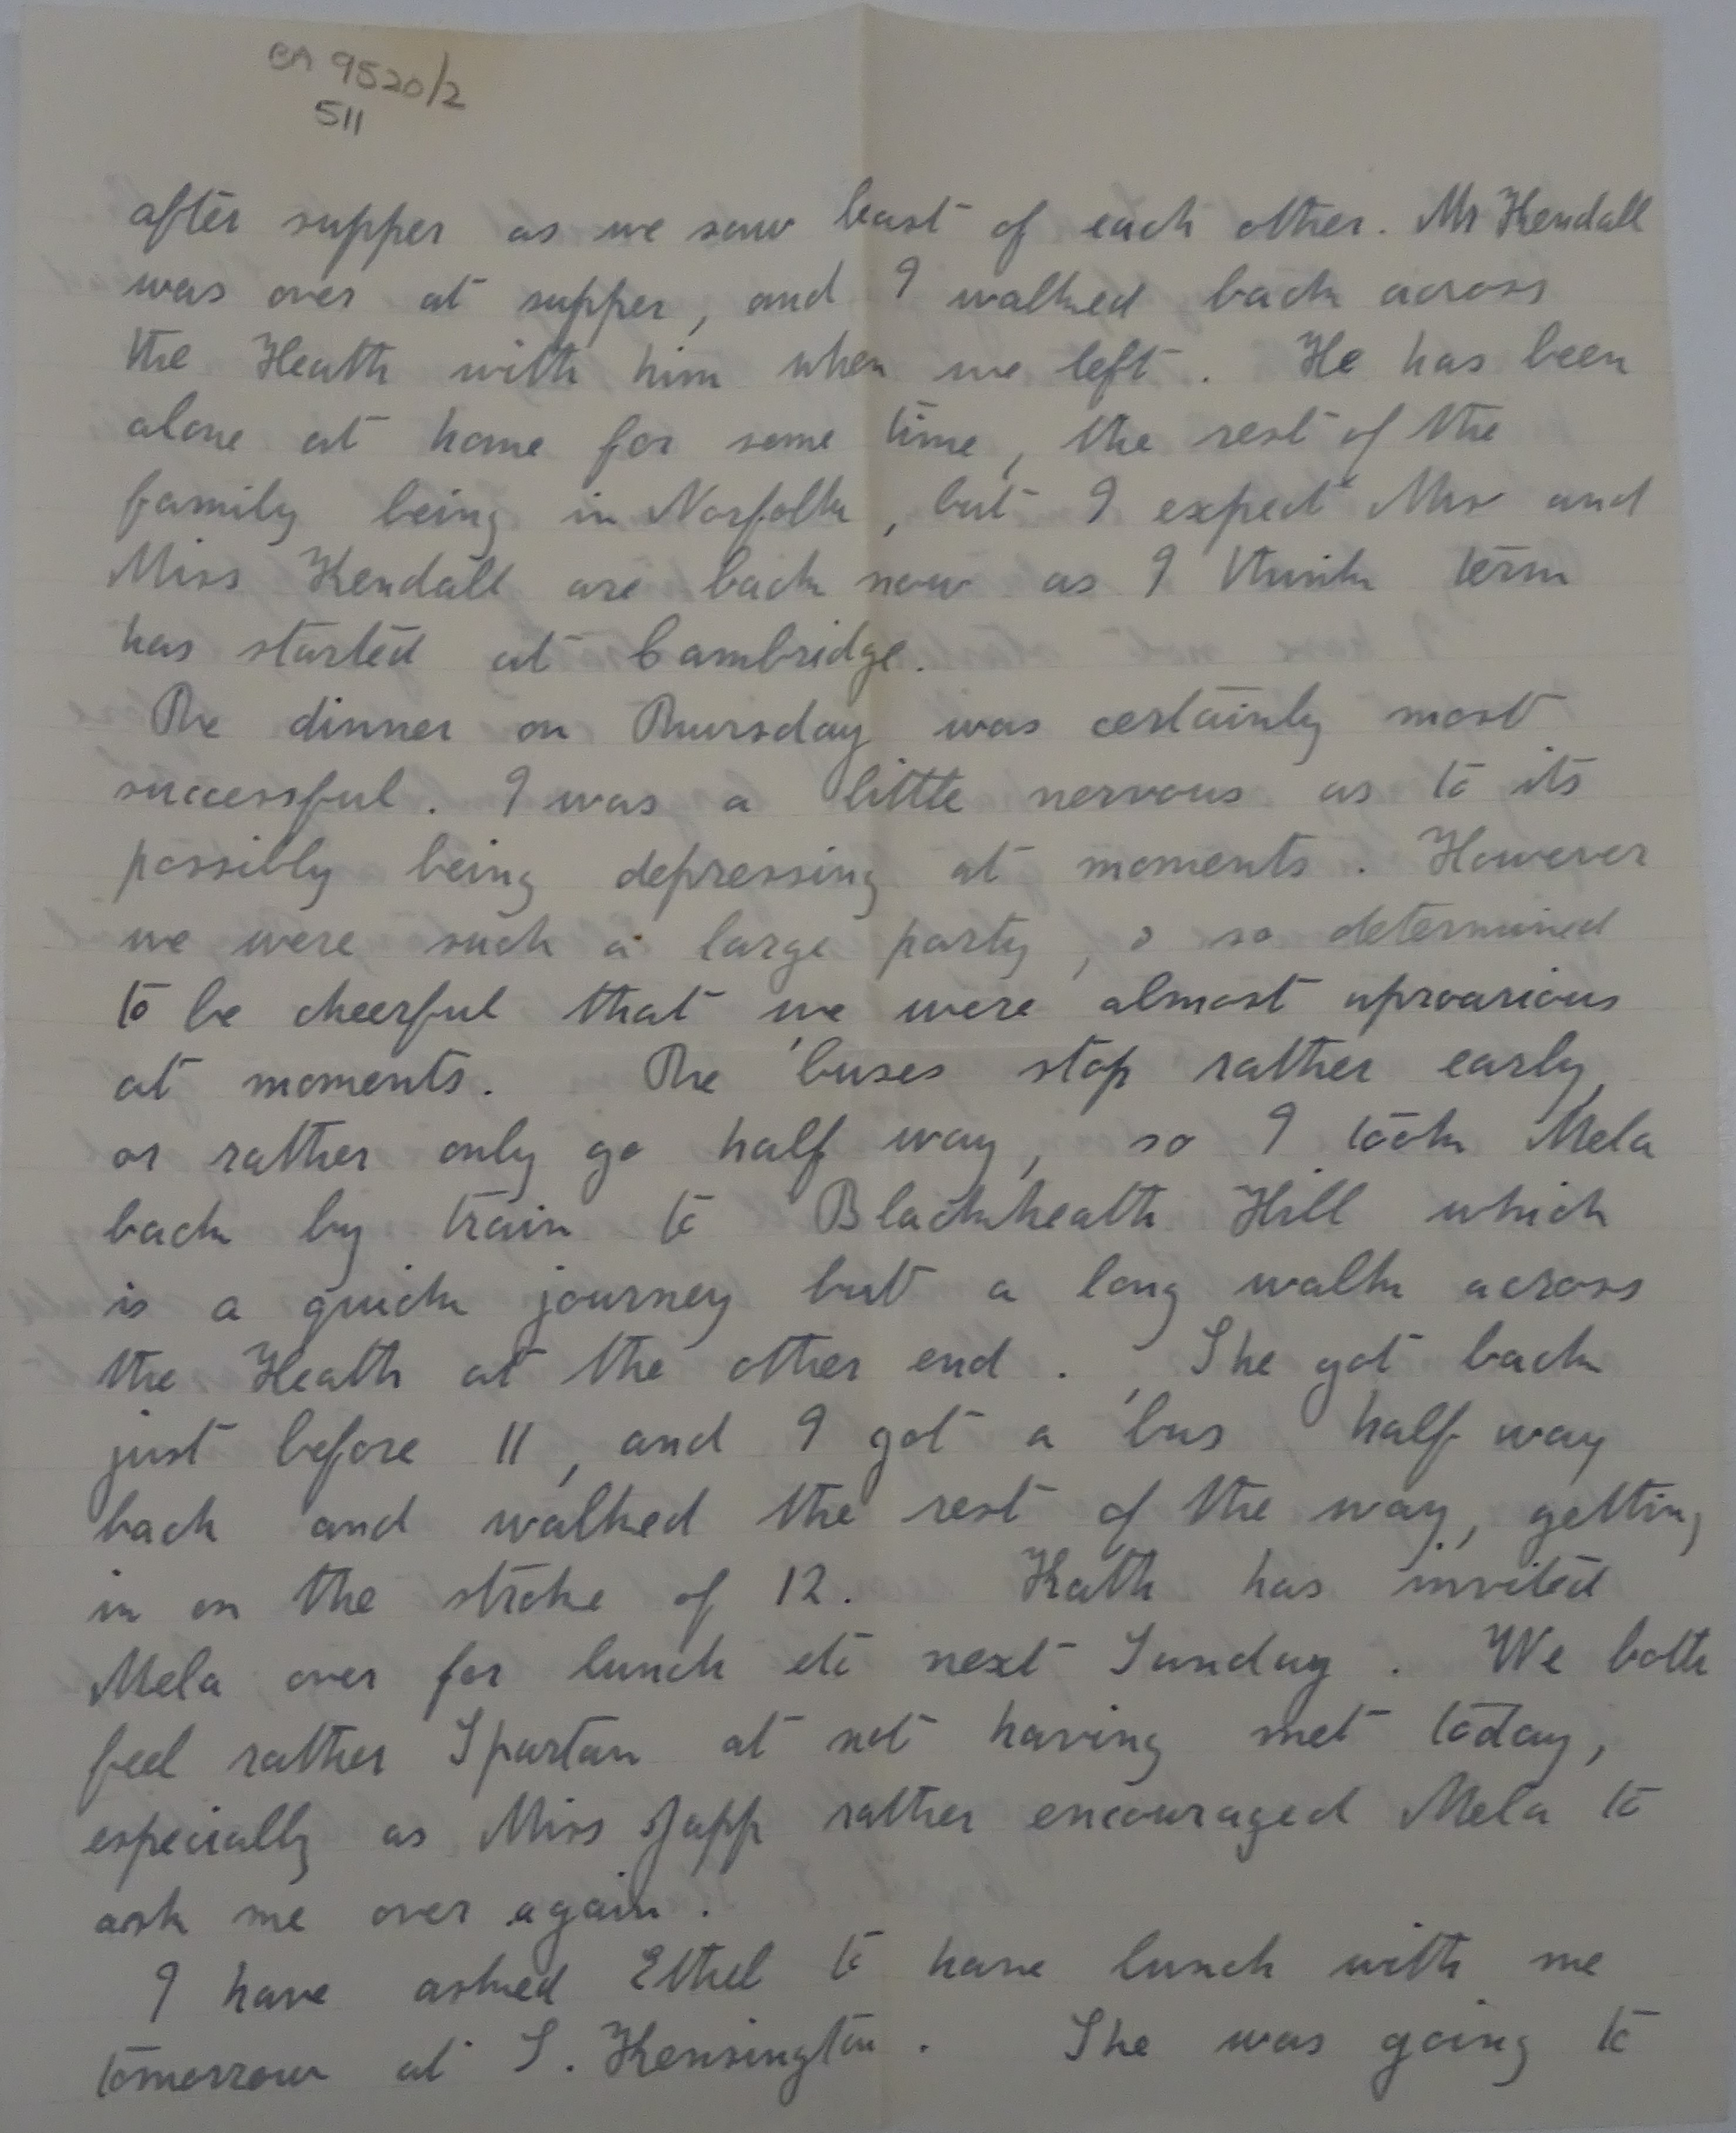 BA 9520/2
511
after supper as we saw least of each other. Mr Kendall
was over at supper, and I walked back across
the Heath with him when we left. He has been
alone at home for some time, the rest of the
family being in Norfolk, but I expect Mrs and
Miss Kendall are back now as I think term
has started at Cambridge.
The dinner on Thursday was certainly most
successful. I was a little nervous as to its
possibly being depressing at moments. However
we were such a large party, & so determined
to be cheerful that we were almost uproarious
at moments. The 'buses stop rather early,
or rather only go half way, so I took Mela
back by train to Blackheath Hill which
is a quick journey but a long walk across
the Heath at the other end. She got back
just before 11, and I got a 'bus half way
back and walked the rest of the way, getting
in on the stroke of 12. Kath has invited
Mela over for lunch etc next Sunday. We both
feel rather Spartan at not having met today,
especially as Miss Japp rather encouraged Mela to
ask me over again.
I have asked Ethel to have lunch with me
tomorrow at S. Kensington. She was going to